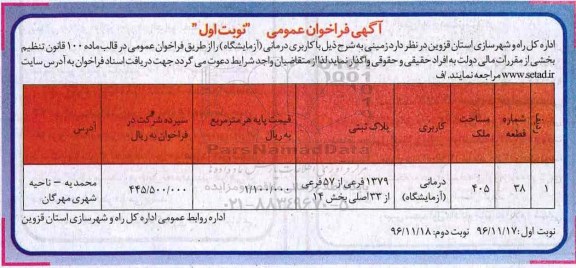 آگهی فراخوان عمومی "نوبت اول"
اداره کل راه و شهرسازی استان قزوین در نظر دارد زمینی به شرح ذیل با کاربری درمانی (آزمایشگاه) را از طریق فراخوان عمومی در قالب ماده ۱۰۰ قانون تنظیم
بخشی از مقررات مالی دولت به افراد حقیقی و حقوقی واگذار نماید لذا از متقاضیان واجد شرایط دعوت می گردد جهت دریافت اسناد فراخوان به آدرس سایت
www.setad.ir مراجعه نمایند. /ف
ردیف شماره قطعه مساحت ملک کاربری پلاک ثبتی قیمت پایه هر مترمربع به ریال سپرده شرکت در فراخوان به ریال آدرس
۱ ۳۸ ۴۰۵ درمانی (آزمایشگاه) ۱۳۷۹ فرعی از ۵۷ فرعی از ۳۳ اصلی بخش ۱۴ ۱/۱۰۰/۰۰۰ ۴۴۵/۵۰۰/۰۰۰ محمدیه – ناحیه شهری مهرگان
اداره روابط عمومی اداره کل راه و شهرسازی استان قزوین
نوبت اول: ۹۶/۱۱/۱۷ نوبت دوم: ۹۶/۱۱/۱۸
ParsNamadData
۰۲۱-۸۸۳۴۹۶۷۰-۵